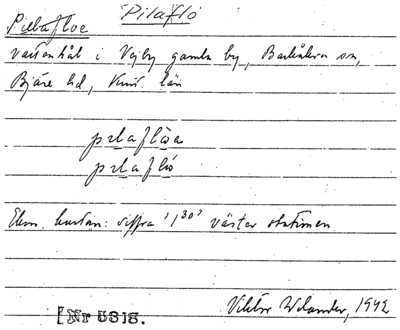 Pilaflo
Pielafloe
vattenhål i Vejby gamla by, Barkåkra sn,
Bjäre hd, Krist. län
pɪlaflöa
pɪlafló
Ekon. kartan: siffra '130' väster stationen.
Viktor Wolander, 1942
[Nr 5818.